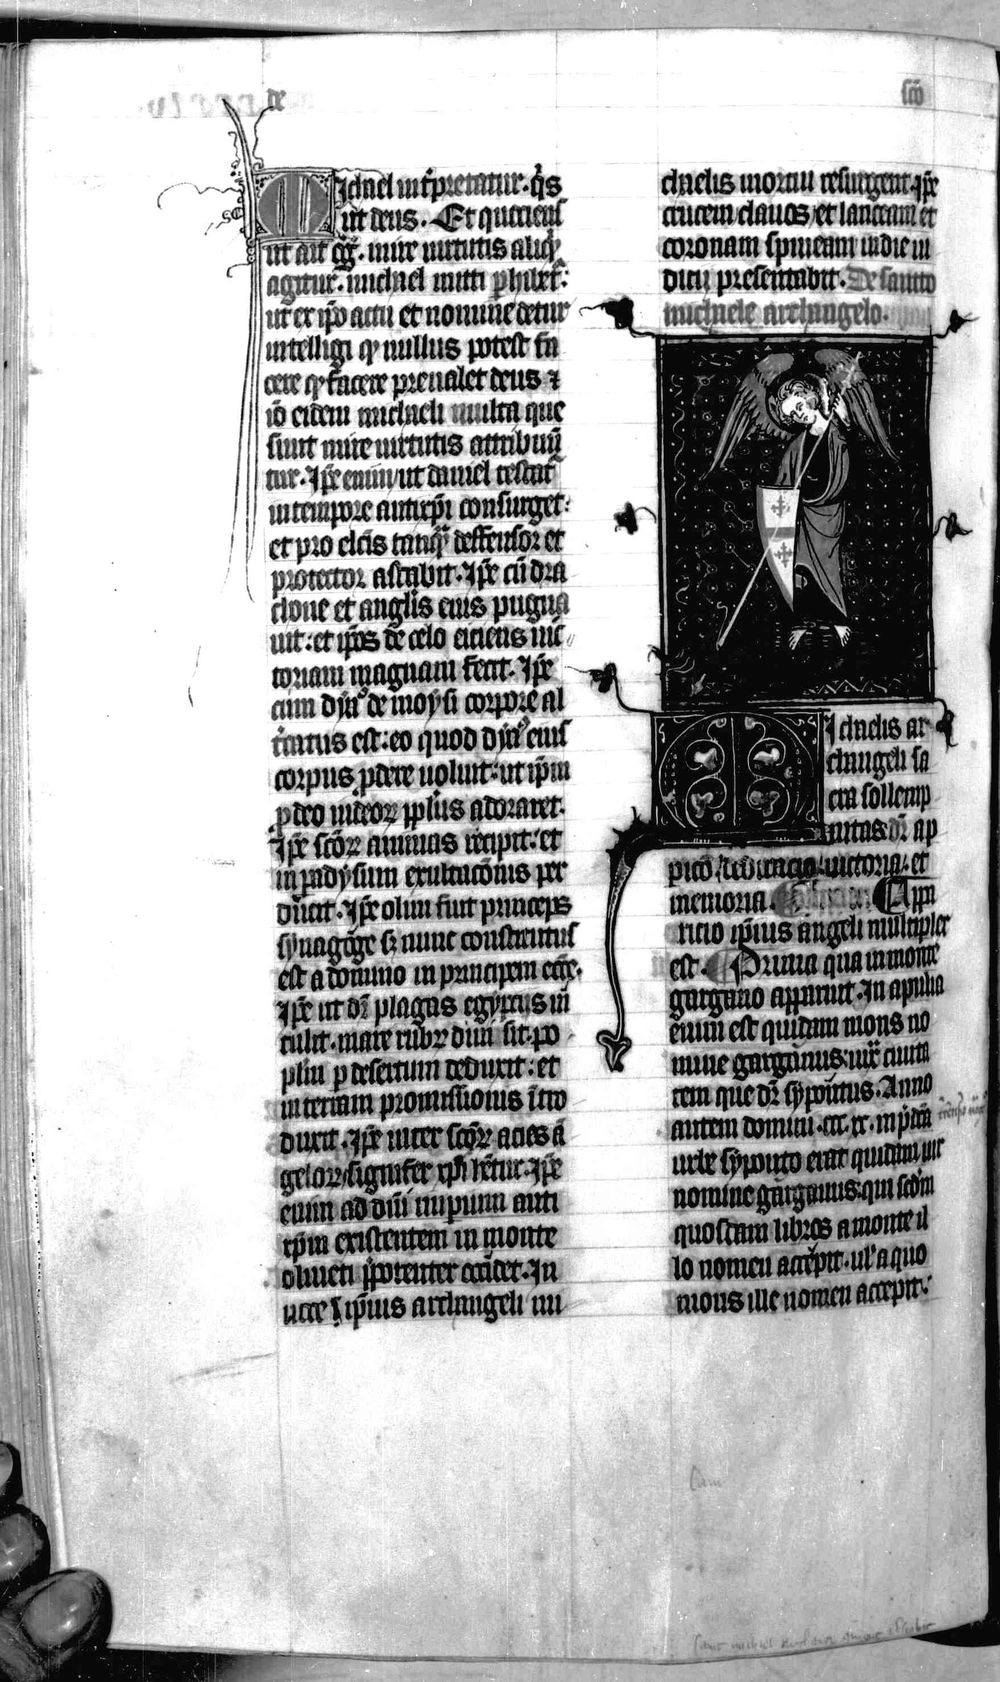 de
sco
Michael int̃pretatur. q̇s
ut deus. Et quociens
ut ait gg̃. mire uirtutis aliqͥ
agitur. michael mitti ꝑhibet᷑:
ut ex ip̃o actu et nomine detur
intelligi qͥ nullus potest fa
cere qͥ facere preualet deus ⁊
iõ eidem michaeli multa que
sunt mire uirtutis attribuũ
tur. Ip̃e enim ut daniel testat᷑
in tempore antixp̃i consurget:
et pro elc̃is tanq̃ deffensor et
protector astabit. Ip̃e cũ dra
chone et anglis eius pugna
uit: et ip̃os de celo eiciens uic
toriam magnam fecit. Ip̃e
cum dyãº de moysi corpore al
t̃catus est: eo quod dyãº eius
corpus ꝓdere uoluit: ut ip̃m
ꝓ deo iudeoꝝ ppl̃us adoraret.
Ip̃e sc̃oꝝ animas recipit: et
in ꝑadysum exultac̃onis per
ducit. Ip̃e olim fuit princeps
synagoge sꝫ nunc constitutus
est a domino in principem ecc̃e.
Ip̃e ut dr̃ plagas egyptus in
tulit. mare rubꝝ diuisit. po
plm̃ ꝑ desertum deduxit: et
in terram promissionis ĩtro
duxit. Ip̃e inter sc̃oꝝ acies ã
geloꝝ signifer xp̃i hẽtur. Ip̃e
enim ad dñi imperium anti
xp̃m existentem in monte
oliueti ꝑpotenter occidet. In
uoce ip̃ius archangeli mi
chaelis mortui resurgent. ip̃e
crucem clauos et lanceam et
coronam spineam in die iu
dicij presentabit. De sancto
michaele archangelo.
Michaelis ar
changeli sa
cra sollemp
nitas dr̃ ap
paricõ. dedicacio. uictoria. et
memoria. Appa
ricio ip̃ius angeli multiplex
est. Prima qua in monte
gargano apparuit. In apulia
enim est quidam mons no
mine garganus: iuxͣ ciuita
tem que dr̃ sypontus. Anno
autem domini. ccc. xc. in p̃dc̃a
urbe syponto erat quidam uir
nomine garganus: qui scd̃m
quosdam libros a monte il
lo nomen accepit. ul̃ a quo
mons ille nomen accepit: